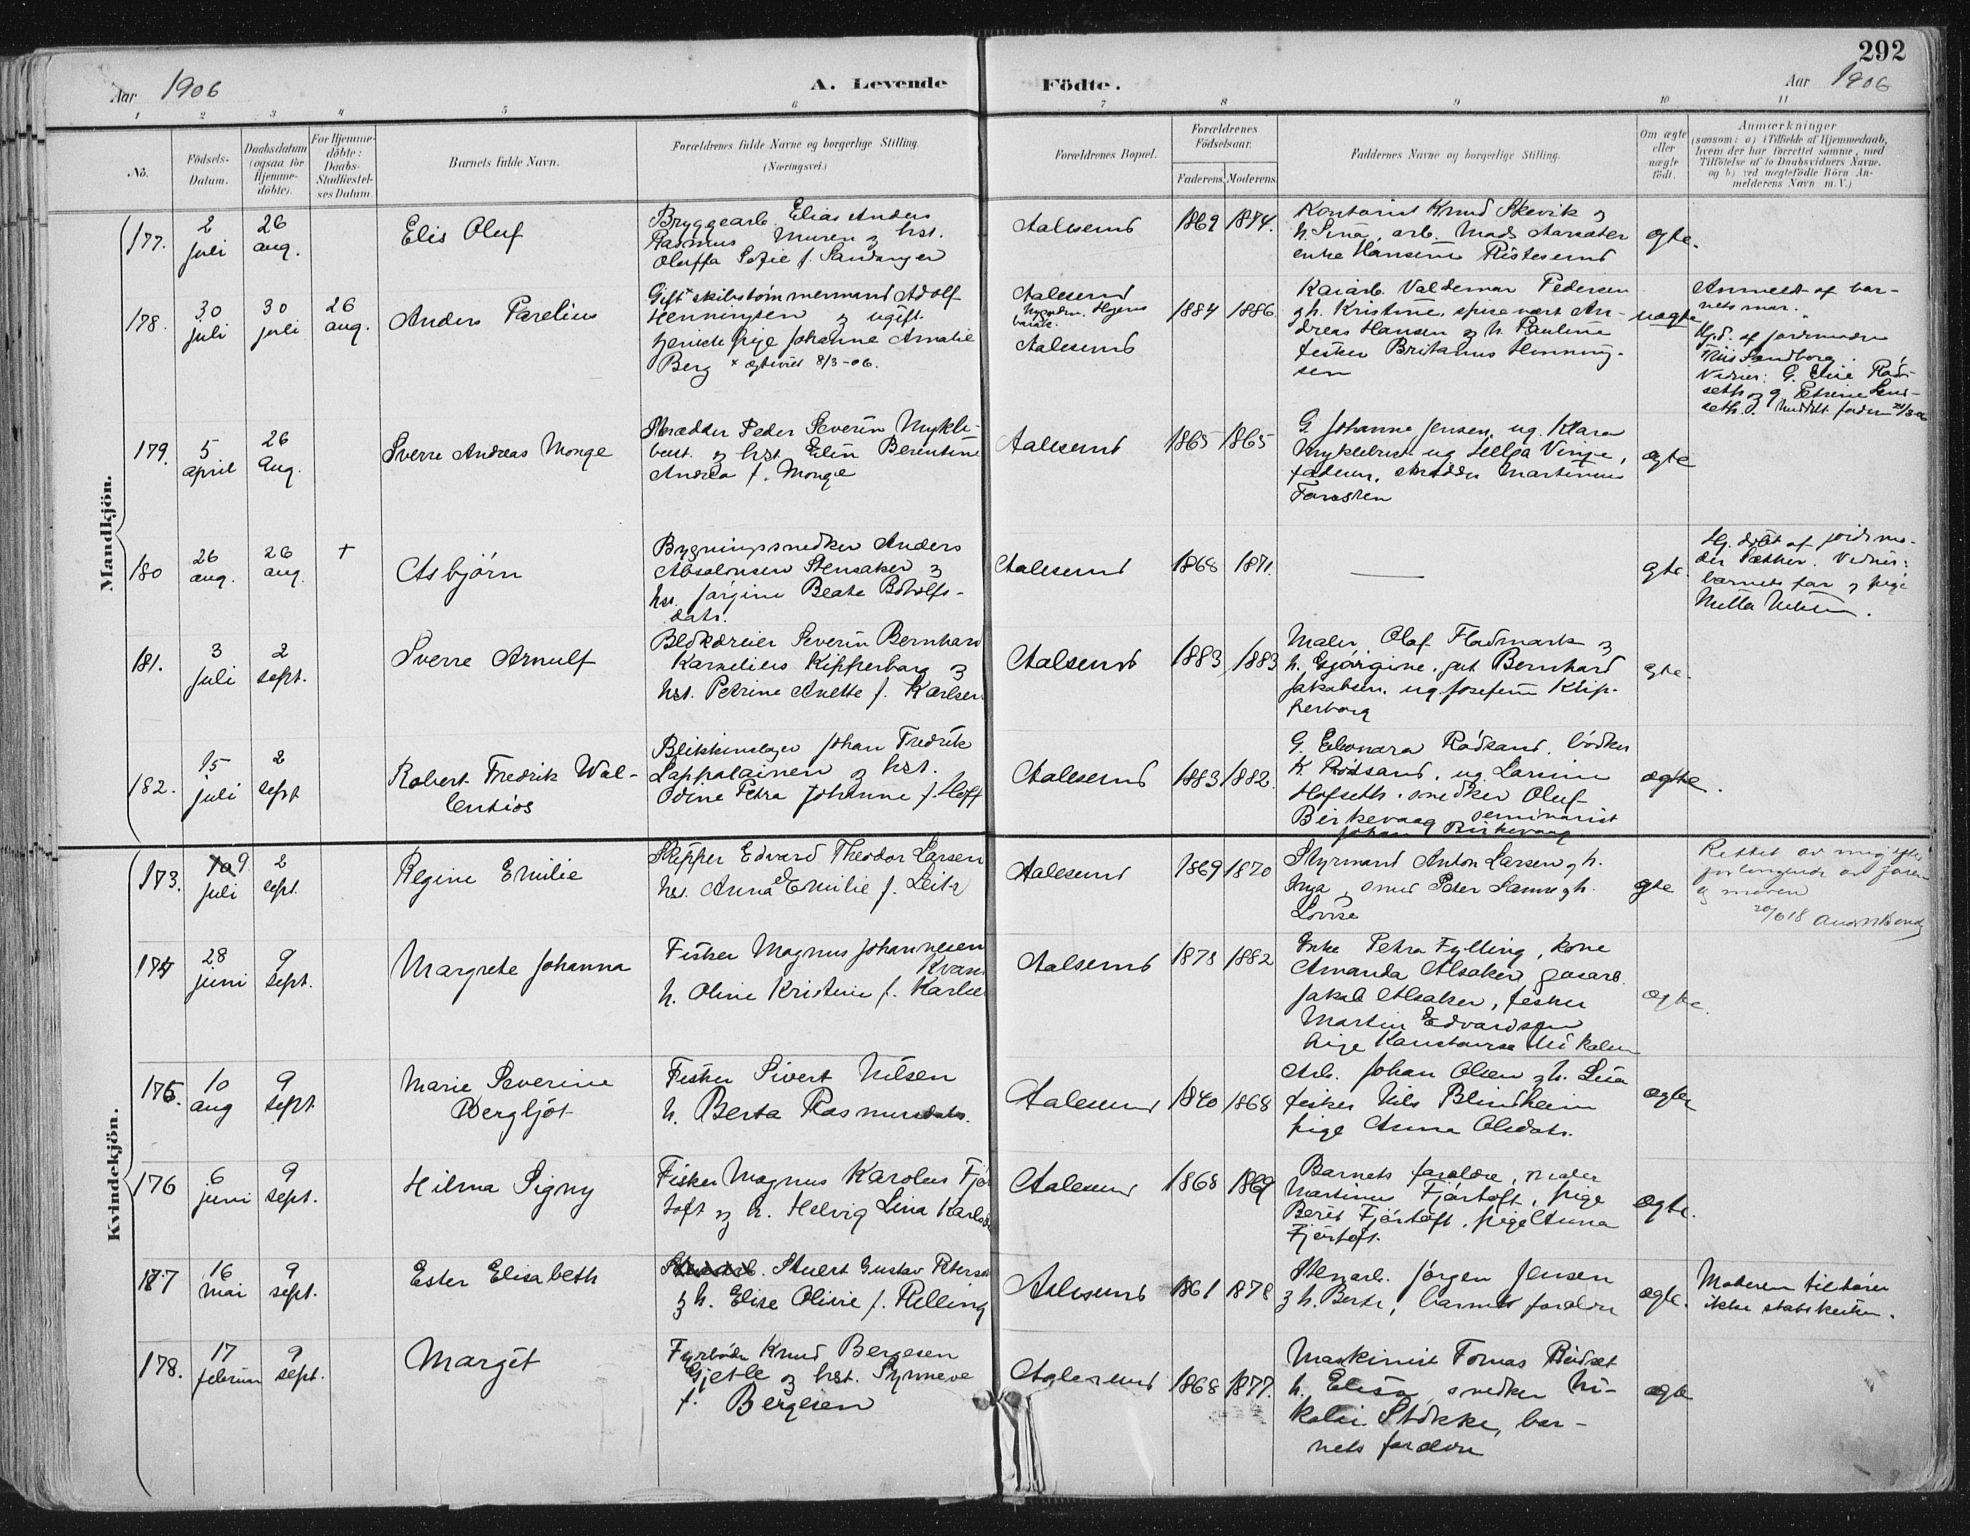 292
Aar 1906
A. Levende
Födte.
Aar 1906
1 2 3 4 5 6 7 8 9 10 11
No.
Födsels-
Datum.
Daabsdatum
(ogsaa for
Hjemme-
döbte).
For Hjemme-
döbte:
Daabs-
Stadfæstel-
ses Datum.
Barnets fulde Navn.
Forældrenes fulde Navne og borgerlige Stilling.
(Næringsvei.)
Forældrenes Bopæl.
Forældrenes
Födselsaar.
Faderens. Moderens.
Faddernes Navne og borgerlige Stilling.
Om ægte
eller
uægte
födt.
Anmærkninger
(saasom: a) i Tilfælde af Hjemmedaab,
hvem der har forrettet samme, med
Tilföielse af to Daabsvidners Navne.
og b) ved uegtefödte Börn An-
melderens Navn m. V.)
Mandkjön.
177.
2
juli
26
aug.
Elis Oluf
Bryggearb. Elias Anders
Rasmus Muren og hst.
Oluffa Sofie f.
Aalesund
1869 1874.
Kontorist Knud Skevik og
h. Sina, arb. Mads Aarsæter
enke Hansine
ægte.
178.
30
juli
30
juli
26
aug.
Anders Parelius
Gift x skibstømmermand Adolf
Henningsen og ugift
pige Johanne Amalie
Berg x ægteviet 8/3-06.
Aalesund
Aalesund
1884 1886.
Kaiarb. Valdemar Pedersen
og h. Kristine, spisevært An-
dreas Hansen og h. Pauline
fisker Britanus Henning-
sen
uægte
Anmeldt af bar-
nets mor.
Hjd. af jordmoder
Sandborg.
Vidner: G. Elise Råd-
seth og g. Petrine
179.
5
april
26
Aug.
Sverre Andreas Monge
Skrædder Peder Severin Mykle-
bust og hst. Elin Berentine
Andrea f. Monge
Aalesund
1865 1865
G. Johanne Jensen, ug. Klara
Myklebust ug Helga Vinje,
faderen, skrædder Martinus
ægte
180
26
aug.
26
aug.
+
Asbjørn
Bygningssnedker Anders
Absalonsen Stensaker og
hst. Jørgine Beate
datr.
Aalesund
1868 1871.
—
ægte.
Hj. døbt af jordmo-
der Sæther. Vidner:
barnets far og pige
181.
3
juli
2
sept.
Sverre Arnulf
Severin Bernhard
Kornelius Kipperberg og
hst. Petrine Anette f. Karlsen
Aalesund
1883 1883
Maler Olaf Fladmark og
h. Gjørgine, gut Bernhard
Jakobsen, ug. Josefine Klip-
perborg
ægte.
182.
15
juli
2
sept
Robert Fredrik Wal-
lentios
Blikkenslager Johan Fredrik
Lappalainen og hst.
Odine Petra Johanne f. Hoff
Aalesund
1883 1882.
G. Eleonora Rødsand, bødker
K. Rødsand, ug. Larsine
Hofseth, snedker Oluf
Birkevaag seminarist
Johan Birkevaag
ægte.
Kvindekjön.
173.
9
juli
2
sept.
Regine Emilie
Skipper Edvard Theodor Larsen
hst. Anna Emilie f. Leite
Aalesund
1869 1870
Styrmand Anton Larsen og h.
Inga, smed Peter
Lovise
ægte
Rettet av mig efter
forlangende av faren
og moren
174
28
juni
9
sept.
Margrete Johanna
Fisker Magnus Johannesen
h. Oline Kristine f.
Aalesund
1878 1882
Enke Petra Fylling, kone
Amanda Alsaker, gasarb.
Jakob Alsaker, fisker
Martin Edvardsen
pige
ægte.
175.
10
aug
9
sept.
Marie Severine
Bergljot
Fisker Sivert Nilsen
h. Berta Rasmusdatr.
Aalesund
1840 1868
Arb. Johan Olsen og h. Lisa
fisker Nils Blindheim
pige Anna Olsdatr.
ægte
176
6
juni
9
sept.
Hilma Signy
Fisker Magnus Karolus Fjør
toft og h. Helvig Lina
Aalesund
1868 1869
Barnets forældre, maler
Martinus Fjørtoft, pige
Beret Fjørtoft, pige Anna
Fjørtoft.
ægte.
177
16
mai
9
sept.
Ester Elisabeth
Stuert Gustav
og h. Elise Olivie f. Relling
Aalesund
1861 1878
Stenarb. Jørgen Jensen
og h. Berte, barnets forældre
ægte.
Moderen tilhører
ikke statskirken.
178.
17
februar
9
sept.
Margit
Fyrbøder Knud Bergesen
Gjetle og hst. Synneve
f. Bergesen
Aalesund
1868 1877.
Maskinist Tomas
h. Elisa, snedker Ni-
kolai Stokke, bar-
nets forældre
ægte